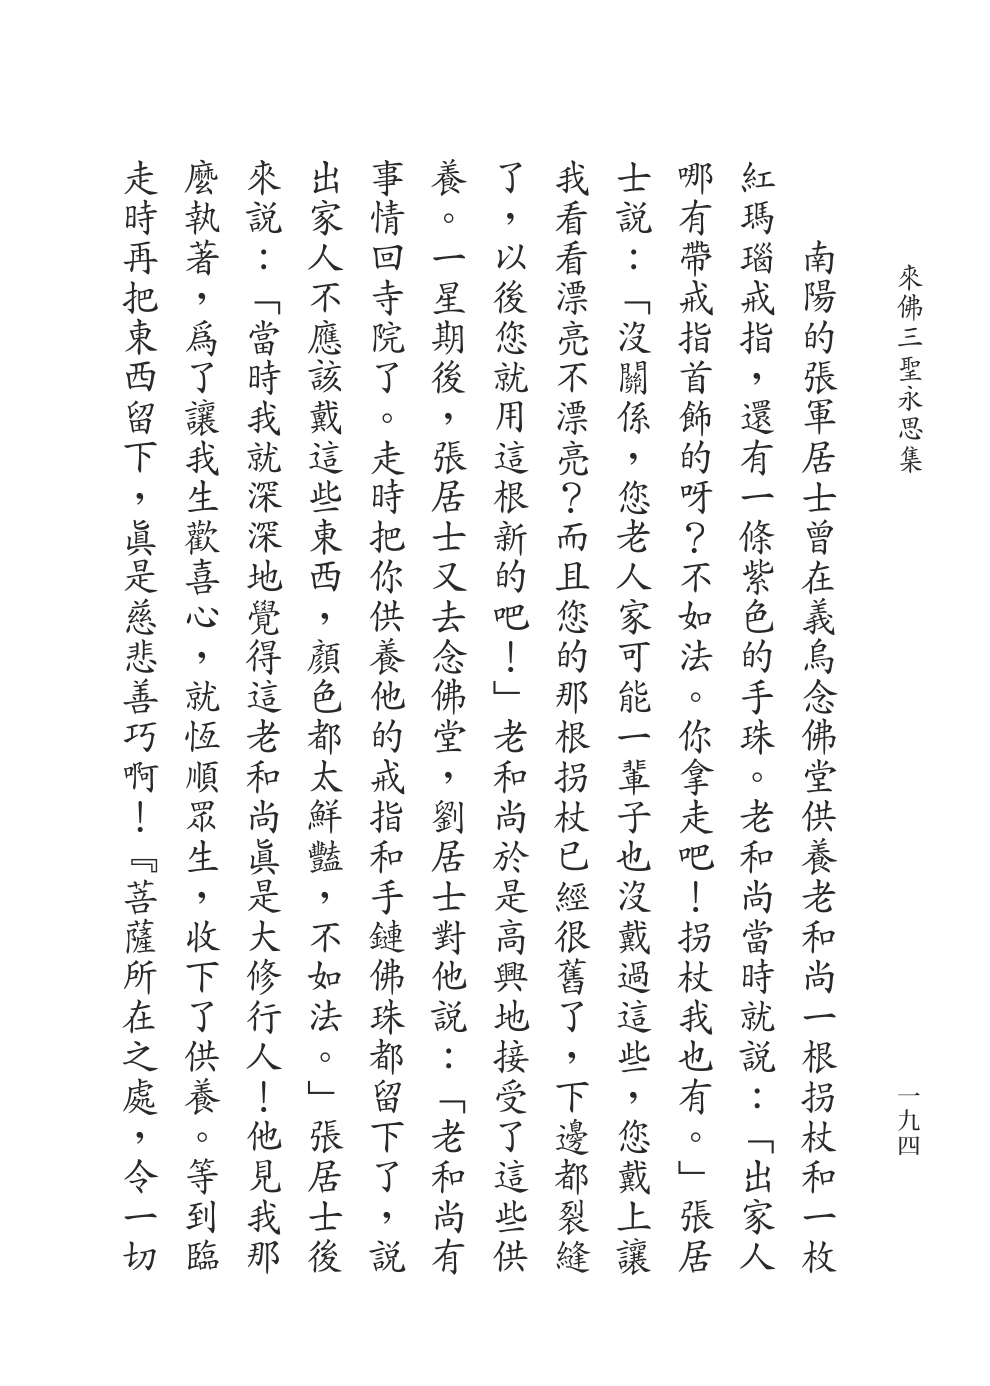 來佛三聖永思集
一九四
南陽的張軍居士曾在義烏念佛堂供養老和尚一根拐杖和一枚
紅瑪瑙戒指，還有一條紫色的手珠。老和尚當時就説：「出家人
哪有帶戒指首飾的呀？不如法。你拿走吧！拐杖我也有。」張居
士説：「沒關係，您老人家可能一輩子也沒戴過這些，您戴上讓
我看看漂亮不漂亮？而且您的那根拐杖已經很舊了，下邊都裂縫
了，以後您就用這根新的吧！」老和尚於是高興地接受了這些供
養。一星期後，張居士又去念佛堂，劉居士對他説：「老和尚有
事情回寺院了。走時把你供養他的戒指和手鏈佛珠都留下了，説
出家人不應該戴這些東西，顏色都太鮮豔，不如法。」張居士後
來説：「當時我就深深地覺得這老和尚眞是大修行人！他見我那
麼執著，爲了讓我生歡喜心，就恆順眾生，收下了供養。等到臨
走時再把東西留下，眞是慈悲善巧啊！『菩薩所在之處，令一切